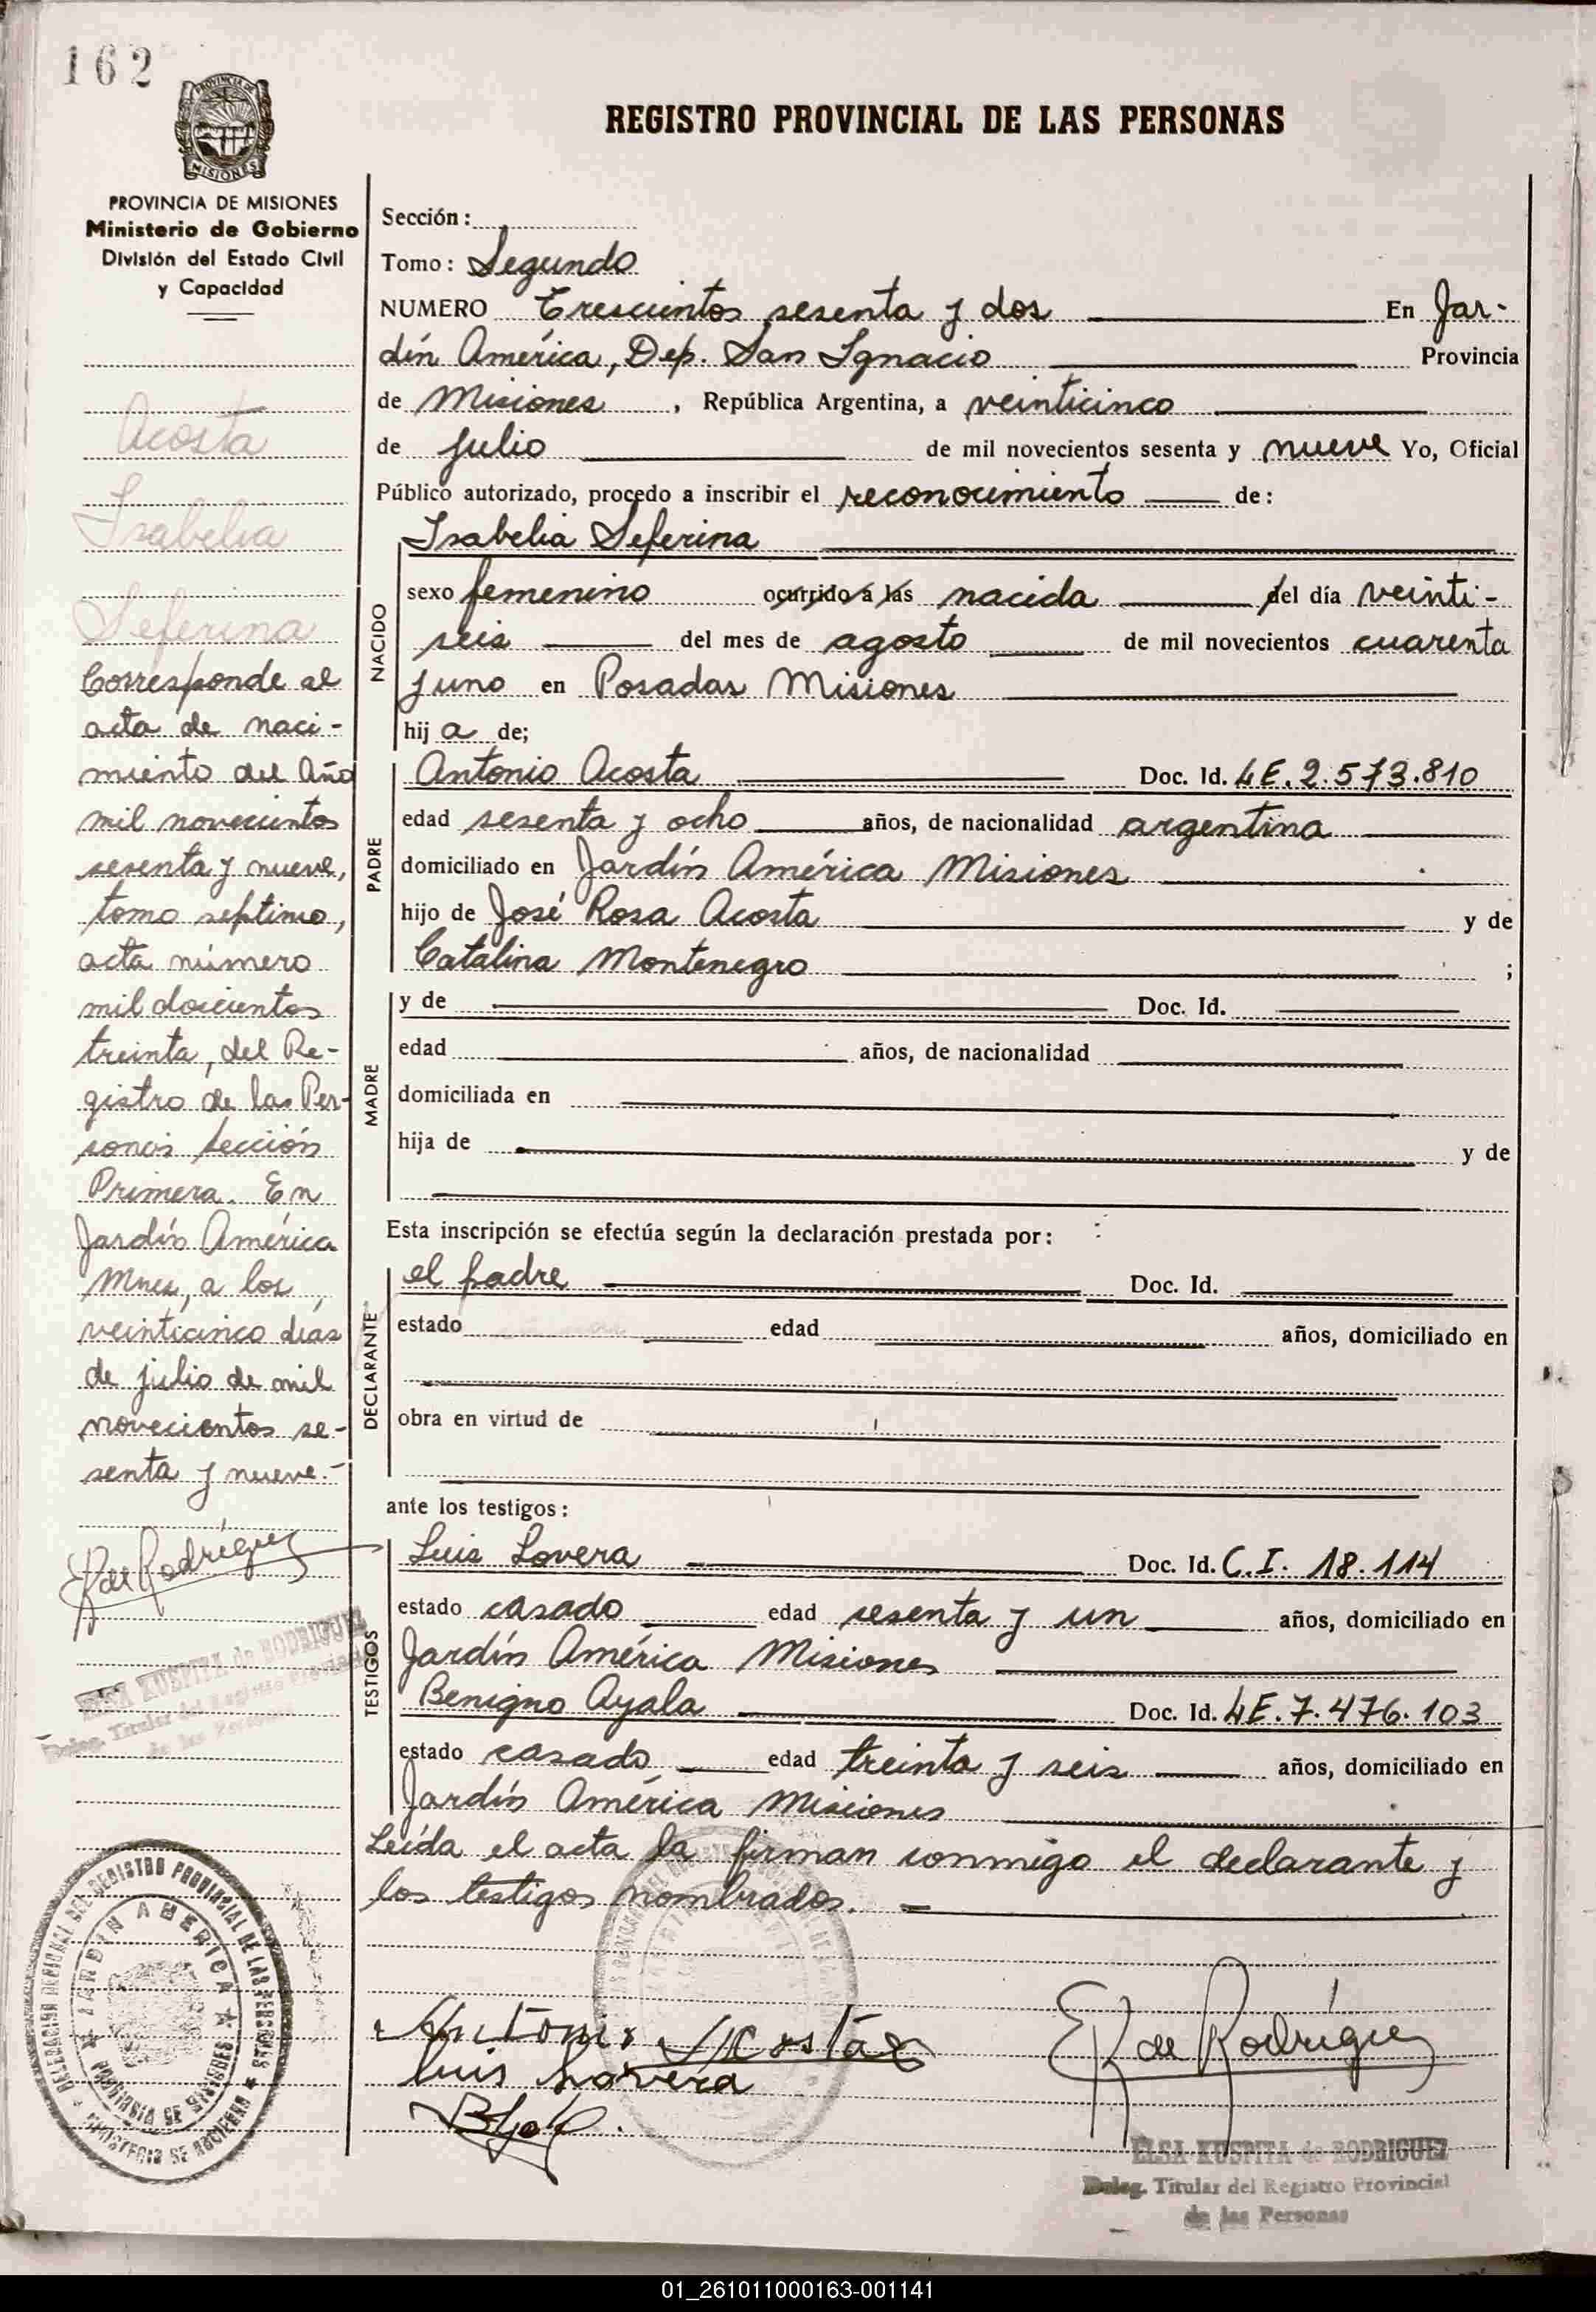 162
PROVINCIA DE
MISIONES
REGISTRO PROVINCIAL DE LAS PERSONAS
PROVINCIA DE MISIONES
Ministerio de Gobierno
División del Estado Civil
y Capacidad
Acosta
Isabelia
Seferina
Corresponde al
acta de naci-
miento del Año
mil novecientos
sesenta y nueve,
tomo septimo,
acta número
mil doscientos
treinta, del Re-
gistro de las Per-
sonas sección
Primera. En
Jardín América
Mnes, a los
veinticinco días
de julio de mil
novecientos se-
senta y nueve.-
E K de Rodríguez
ELSA KUSPITA de RODRIGUEZ
Deleg. Titular del Registro Provincial
de las Personas
DELEGACION REGIONAL DEL REGISTRO PROVINCIAL DE LAS PERSONAS
MINISTERIO DE GOBIERNO
JARDIN AMERICA
PROVINCIA DE MISIONES
Sección:
Tomo: Segundo
NUMERO Trescientos sesenta y dos En Jar-
dín América, Dep. San Ignacio Provincia
de Misiones, República Argentina, a veinticinco
de julio de mil novecientos sesenta y nueve Yo, Oficial
Público autorizado, procedo a inscribir el reconocimiento de:
Isabelia Seferina
NACIDO
sexo femenino ocurrido a las nacida del día veinti-
seis del mes de agosto de mil novecientos cuarenta
y uno en Posadas Misiones
hija de;
PADRE
Antonio Acosta Doc. Id. LE. 2.573.810
edad sesenta y ocho años, de nacionalidad argentina
domiciliado en Jardín América Misiones
hijo de José Rosa Acosta y de
Catalina Montenegro ;
MADRE
y de Doc. Id.
edad años, de nacionalidad
domiciliada en
hija de y de
Esta inscripción se efectúa según la declaración prestada por:
DECLARANTE
el padre Doc. Id.
estado edad años, domiciliado en
obra en virtud de
ante los testigos:
TESTIGOS
Luis Lovera Doc. Id. C.I. 18.114
estado casado edad sesenta y un años, domiciliado en
Jardín América Misiones
Benigno Ayala Doc. Id. LE. 7.476.103
estado casado edad treinta y seis años, domiciliado en
Jardín América Misiones
Leída el acta la firman conmigo el declarante y
los testigos nombrados.
Antonio Acosta
Luis Lovera
E K de Rodríguez
ELSA KUSPITA de RODRIGUEZ
Deleg. Titular del Registro Provincial
de las Personas
01_261011000163-001141